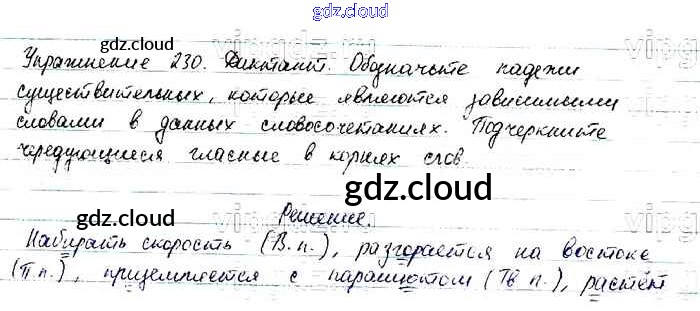 gdz.cloud
gdz.cloud
Упражнение 230. Диктант. Обозначьте падежи
существительных, которые являются зависимыми
словами в данных словосочетаниях. Подчеркните
чередующиеся гласные в корнях слов.
gdz.cloud
Решение.
Набирать скорость (В.п.), разгорается на востоке
gdz.cloud
(П.п.), приземляется с парашютом (Тв п.), растёт